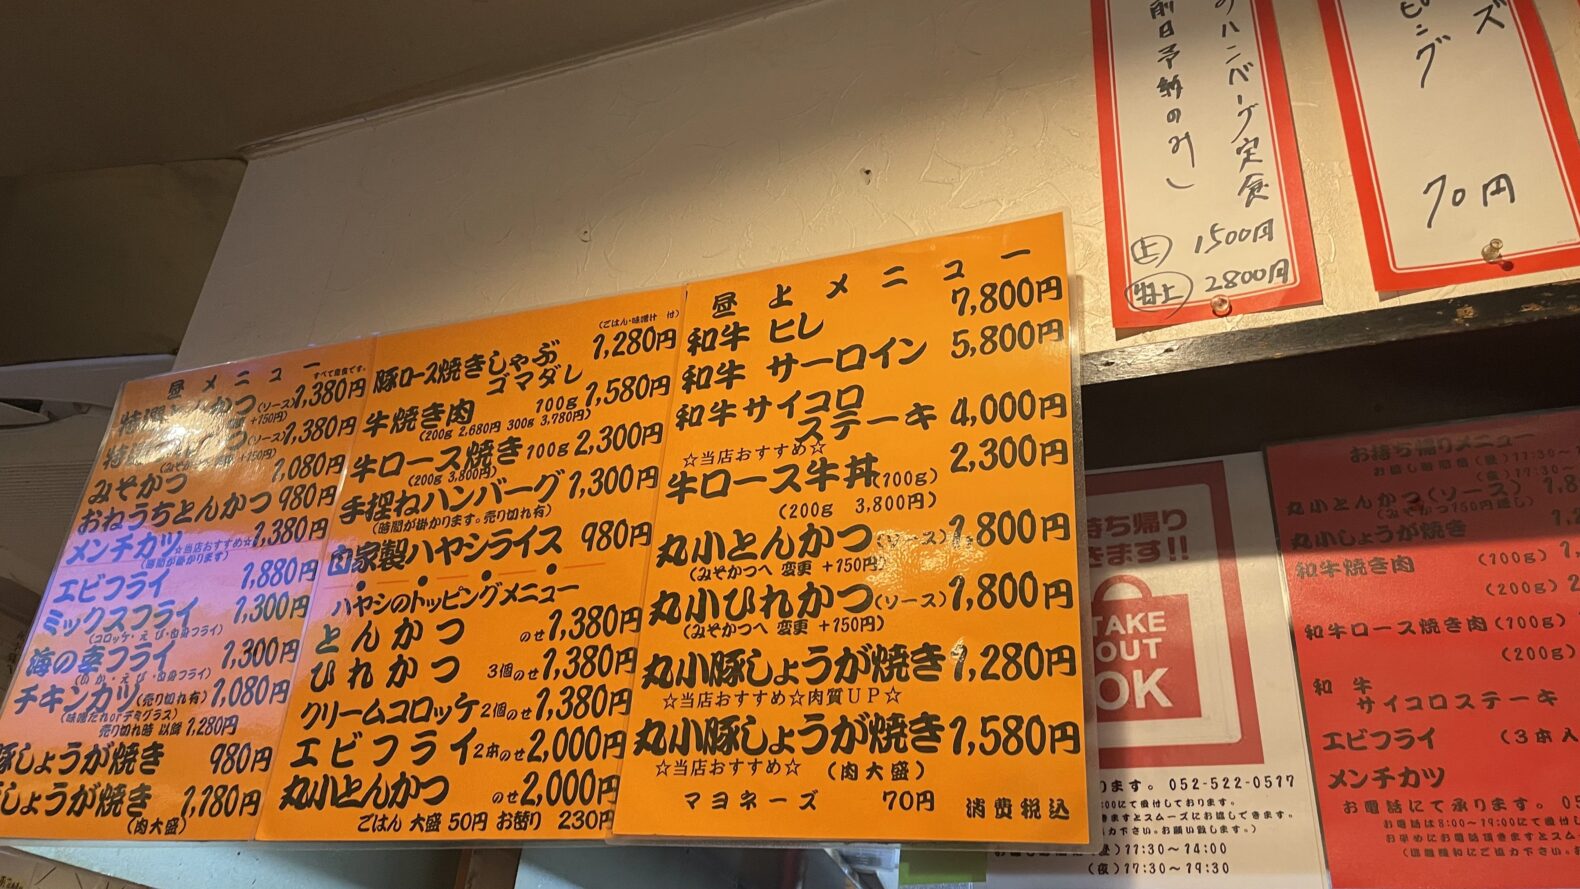 昼メニュー
すべて定食です。
特選とんかつ(ソース) 1,380円
+150円)
(ソース) 1,380円
(みそかつへ 変更 +150円)
みそかつ 1,080円
おねうちとんかつ 980円
メンチカツ ☆当店おすすめ☆ 1,380円
(時間が掛かります)
エビフライ 1,880円
ミックスフライ 1,300円
(コロッケ・えび・白身フライ)
海の幸フライ 1,300円
(いか・えび・白身フライ)
チキンカツ(売り切れ有) 1,080円
(味噌だれorデミグラス)
売り切れ時 以降 1,280円
豚しょうが焼き 980円
しょうが焼き 1,180円
(肉大盛)
(ごはん・味噌汁 付)
豚ロース焼きしゃぶ 1,280円
ゴマダレ
牛焼き肉 100g 1,580円
(200g 2,680円 300g 3,780円)
牛ロース焼き 100g 2,300円
(200g 3,800円)
手捏ねハンバーグ 1,300円
(時間が掛かります。売り切れ有)
自家製ハヤシライス 980円
ハヤシのトッピングメニュー
とんかつ のせ 1,380円
ひれかつ 3個のせ 1,380円
クリームコロッケ 2個のせ 1,380円
エビフライ 2本のせ 2,000円
丸小とんかつ のせ 2,000円
ごはん 大盛 50円 お替り 230円
昼上メニュー
和牛 ヒレ 7,800円
和牛 サーロイン 5,800円
和牛サイコロ
ステーキ 4,000円
☆当店おすすめ☆
牛ロース牛丼(100g) 2,300円
(200g 3,800円)
丸小とんかつ(ソース) 1,800円
(みそかつへ 変更 +150円)
丸小ひれかつ(ソース) 1,800円
(みそかつへ 変更 +150円)
丸小豚しょうが焼き 1,280円
☆当店おすすめ☆肉質UP☆
丸小豚しょうが焼き 1,580円
☆当店おすすめ☆ (肉大盛)
マヨネーズ 70円 消費税込
のハンバーグ定食
前日予約のみ
上 1500円
特上 2800円
ズ
ピング
70円
持ち帰り
きます!!
TAKE
OUT
OK
ります。 052-522-0517
:00にて受付しております。
きますとスムーズにお渡しできます。
力下さい。お願い致します。)
昼)11:30~14:00
(夜)17:30~19:30
お持ち帰りメニュー
お渡し時間帯(昼)11:30~1
(夜)17:30~
丸小とんかつ(ソース) 1,8
(みそかつ150円増し)
丸小しょうが焼き 1,2
和牛焼き肉 (100g) 1,
(200g) 2
和牛ロース焼き肉(100g)
(200g)
和牛
サイコロステーキ
エビフライ (3本入
メンチカツ
お電話にて承ります。 05
お電話は8:00~19:00にて受付し
お早めにお電話頂きますとスム
(混雑緩和にご協力下さい。お